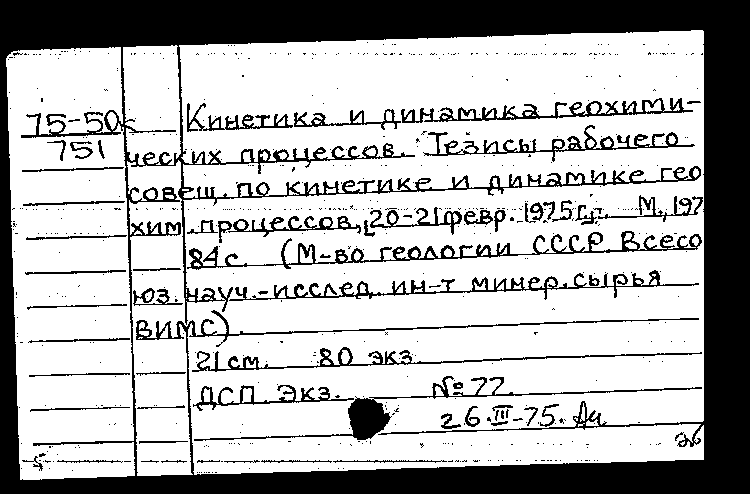 75-50к Кинетика и динамика геохими-
751 ческих процессов. Тезисы рабочего
совещ. по кинетике и динамике гео
хим. процессов, 20-21 февр. 1975 г. М., 197
84 с. (М-во геологии СССР. Всесо
юз. науч.-исслед. ин-т минер. сырья
ВИМС).
21 см. 80 экз.
ДСП Экз. № 77.
26.III-75.